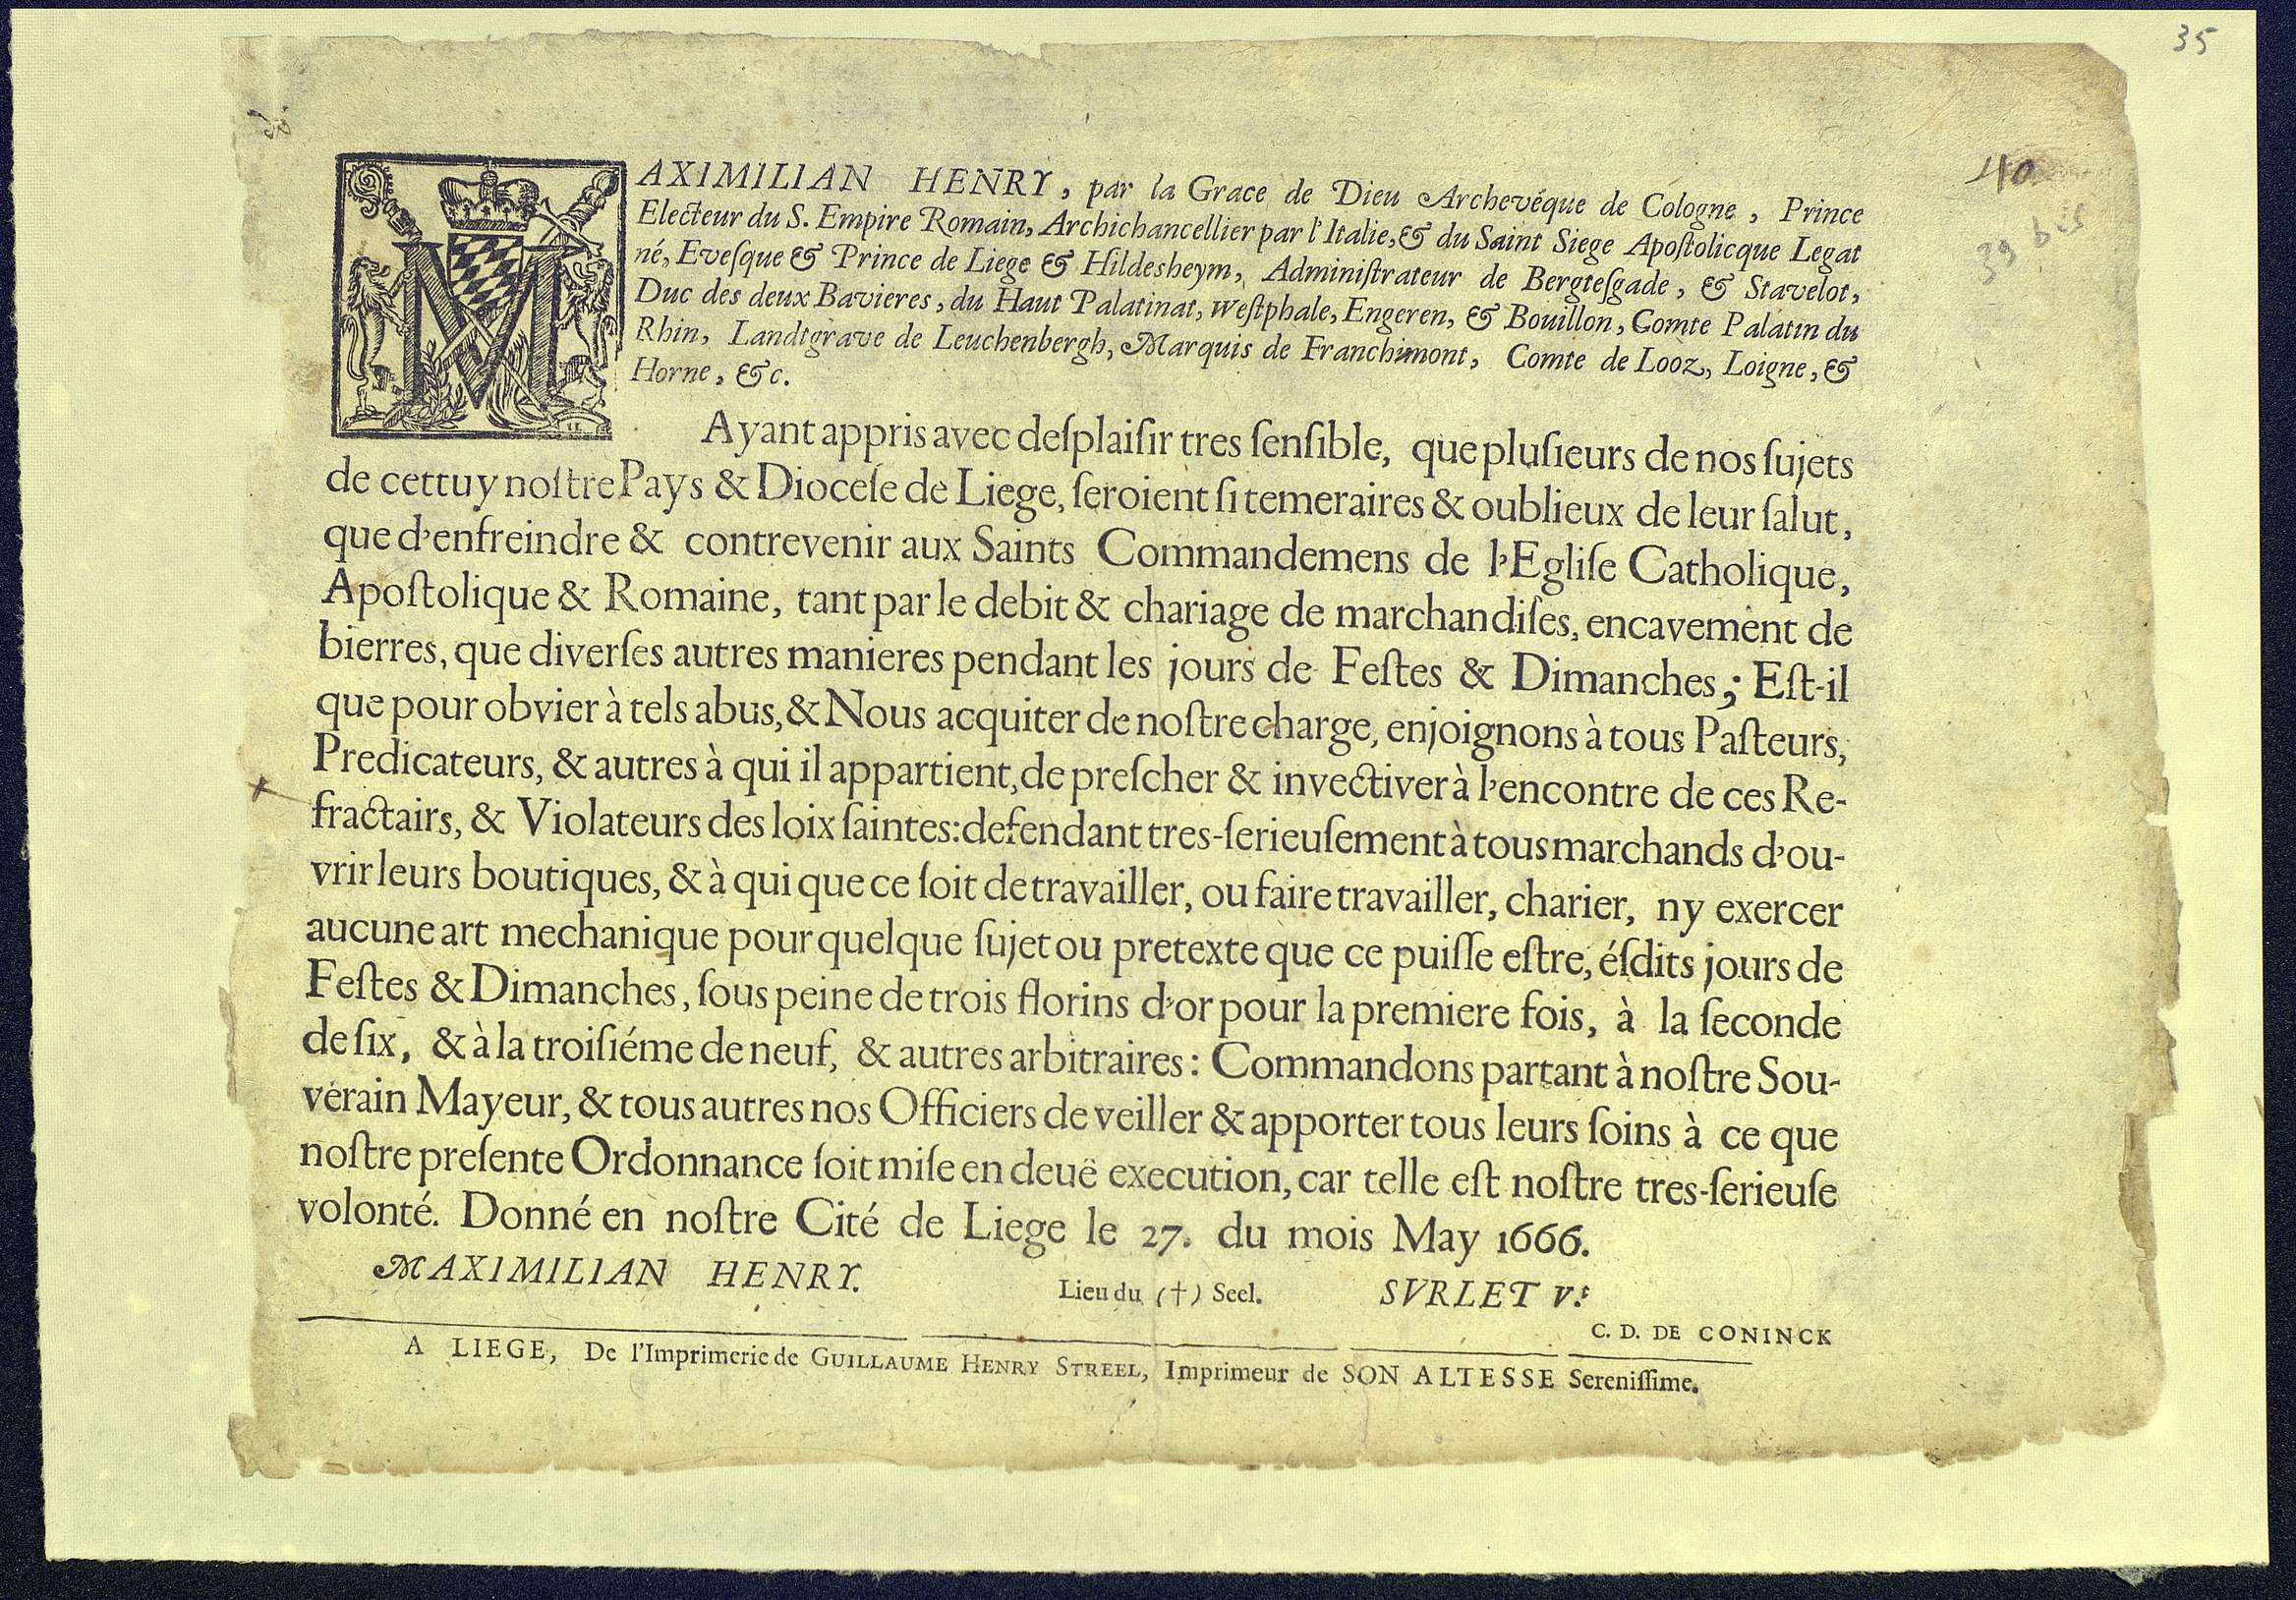 35
40
39 bis
MAXIMILIAN HENRY, par la Grace de Dieu Archevéque de Cologne, Prince
Electeur du S. Empire Romain, Archichancellier par l'Italie, & du Saint Siege Apoſtolicque Legat
né, Eveſque & Prince de Liege & Hildesheym, Adminiſtrateur de Bergteſgade, & Stavelot,
Duc des deux Bavieres, du Haut Palatinat, Weſtphale, Engeren, & Bouillon, Comte Palatin du
Rhin, Landtgrave de Leuchenbergh, Marquis de Franchimont, Comte de Looz, Loigne, &
Horne, &c.
Ayant appris avec deſplaiſir tres ſenſible, que pluſieurs de nos ſujets
de cettuy noſtre Pays & Dioceſe de Liege, ſeroient ſi temeraires & oublieux de leur ſalut,
que d'enfreindre & contrevenir aux Saints Commandemens de l'Egliſe Catholique,
Apoſtolique & Romaine, tant par le debit & chariage de marchandiſes, encavement de
bierres, que diverſes autres manieres pendant les jours de Feſtes & Dimanches; Eſt-il
que pour obvier à tels abus, & Nous acquiter de noſtre charge, enjoignons à tous Paſteurs,
Predicateurs, & autres à qui il appartient, de preſcher & invectiver à l'encontre de ces Re-
fractairs, & Violateurs des loix ſaintes: defendant tres-ſerieuſement à tous marchands d'ou-
vrir leurs boutiques, & à qui que ce ſoit de travailler, ou faire travailler, charier, ny exercer
aucune art mechanique pour quelque ſujet ou pretexte que ce puiſſe eſtre, éſdits jours de
Feſtes & Dimanches, ſous peine de trois florins d'or pour la premiere fois, à la ſeconde
de ſix, & à la troiſiéme de neuf, & autres arbitraires: Commandons partant à noſtre Sou-
verain Mayeur, & tous autres nos Officiers de veiller & apporter tous leurs ſoins à ce que
noſtre preſente Ordonnance ſoit miſe en deuë execution, car telle eſt noſtre tres-ſerieuſe
volonté. Donné en noſtre Cité de Liege le 27. du mois May 1666.
MAXIMILIAN HENRY. Lieu du (†) Seel. SVRLET V.t
C. D. DE CONINCK
A LIEGE, De l'Imprimerie de GUILLAUME HENRY STREEL, Imprimeur de SON ALTESSE Sereniſſime.